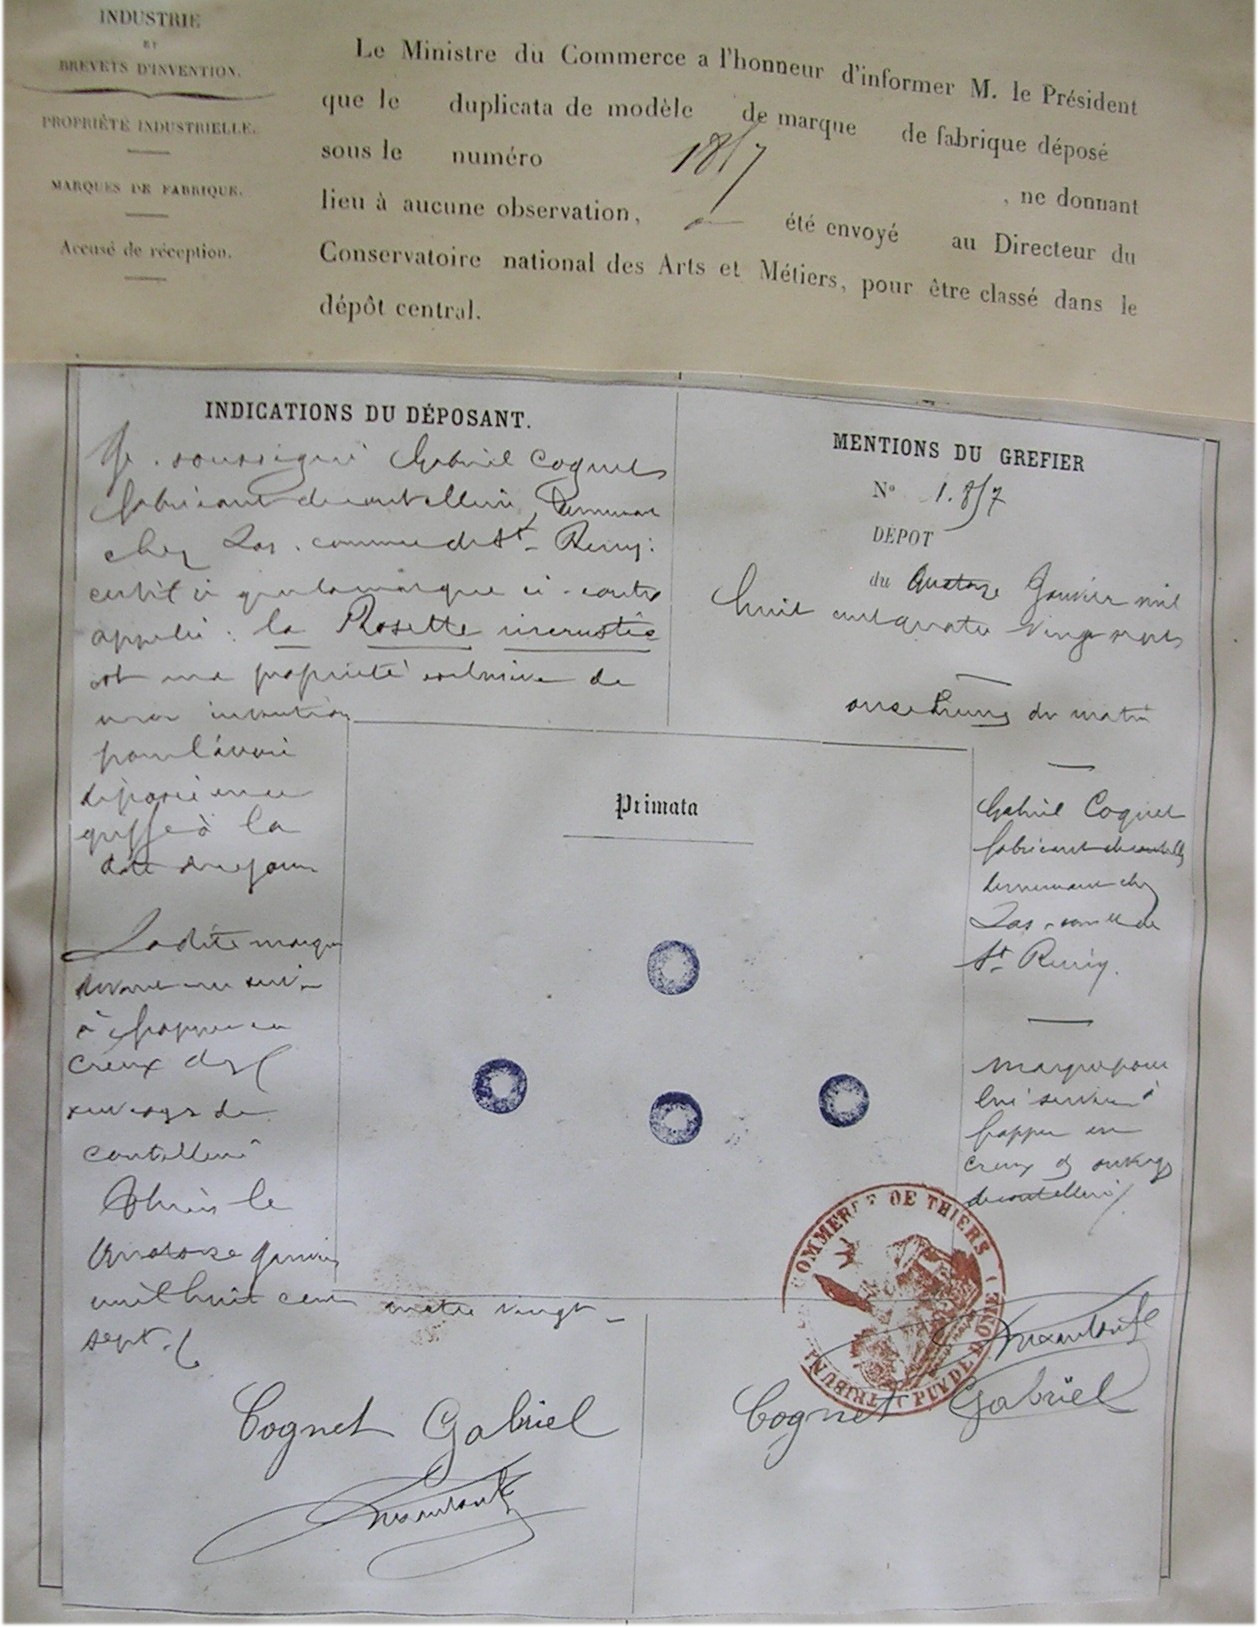 INDUSTRIE
ET
BREVETS D'INVENTION.
PROPRIÉTÉ INDUSTRIELLE.
MARQUES DE FABRIQUE.
Accusé de réception.
Le Ministre du Commerce a l'honneur d'informer M. le Président
que le duplicata de modèle de marque de fabrique déposé
sous le numéro 1857 , ne donnant
lieu à aucune observation, a été envoyé au Directeur du
Conservatoire national des Arts et Métiers, pour être classé dans le
dépôt central.
INDICATIONS DU DÉPOSANT.
Je soussigné Gabriel Cognet
fabricant de coutellerie, demeurant
chez Las, commune de St Remy.
certifie que la marque ci-contre
appelée : la Rosette incrustée
est une propriété exclusive de
mon invention
pour l'avoir
déposée au
greffe à la
date de ce jour
Ladite marque
devant me servir
à frapper en
creux des
ouvrages de
coutellerie
Thiers le
quatorze janvier
mil huit cent quatre vingt
sept.
Cognet Gabriel
MENTIONS DU GREFIER
No 1.857
DÉPOT
du Quatorze Janvier mil
huit cent quatre vingt sept
onze heures du matin
Gabriel Cognet
fabricant de coutellerie
demeurant chez
Las, comne de
St Remy.
marque pour
lui servir à
frapper en
creux des ouvrages
de coutellerie
Primata
COMMERCE DE THIERS
TRIBUN
PUY DE DOME
Cognet Gabriel